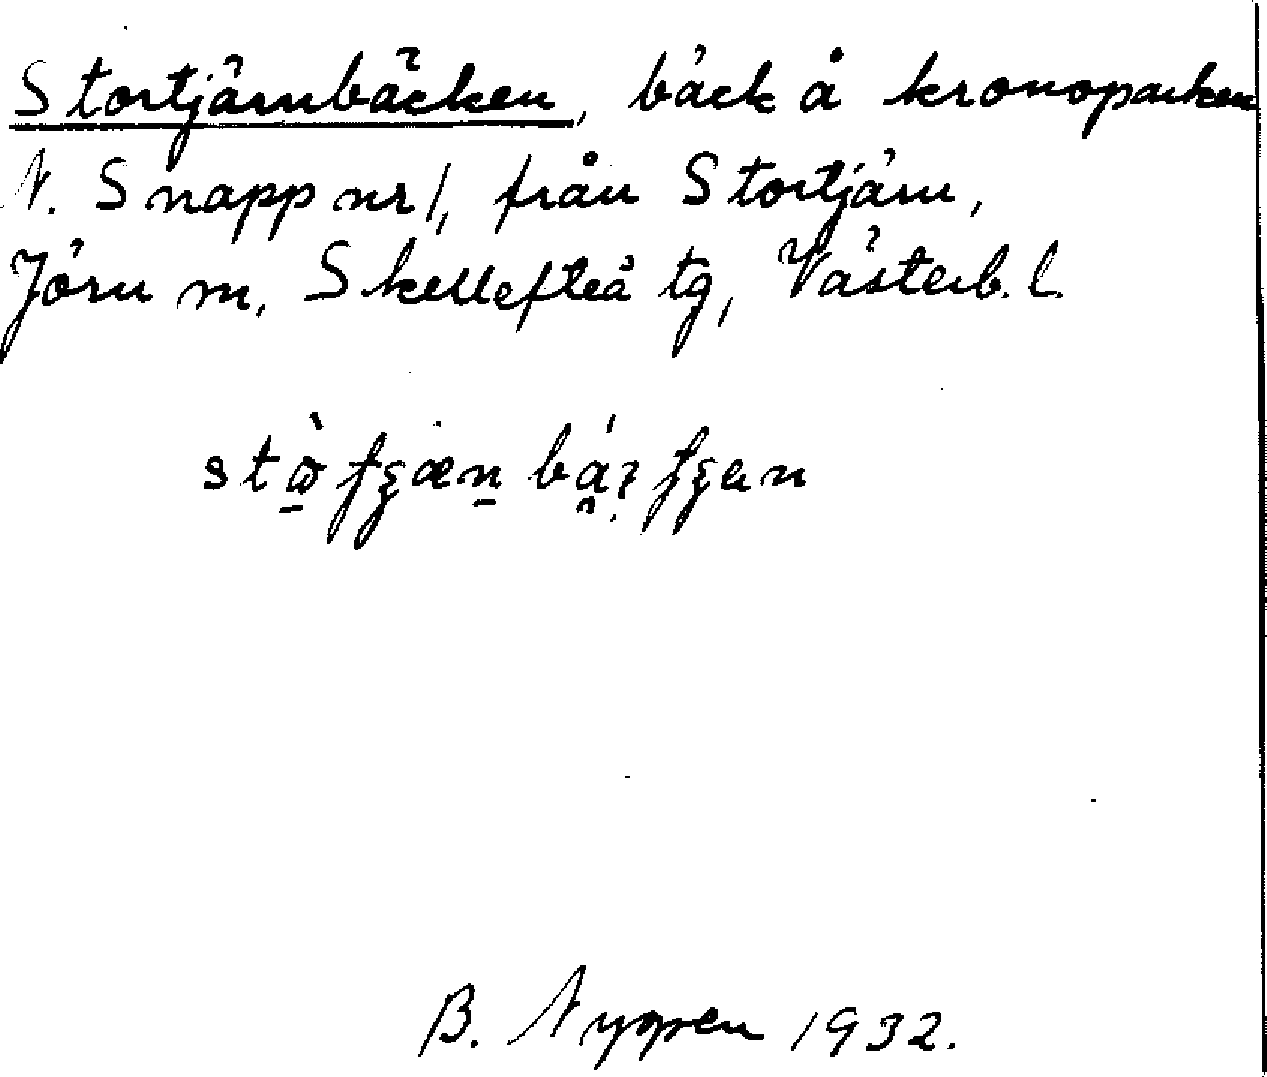 Stortjärnbäcken, bäck å kronoparken
N. Snapp nr 1, från Stortjärn,
Jörn sn, Skellefteå tg, Västerb. l.
B. Nygren 1932.